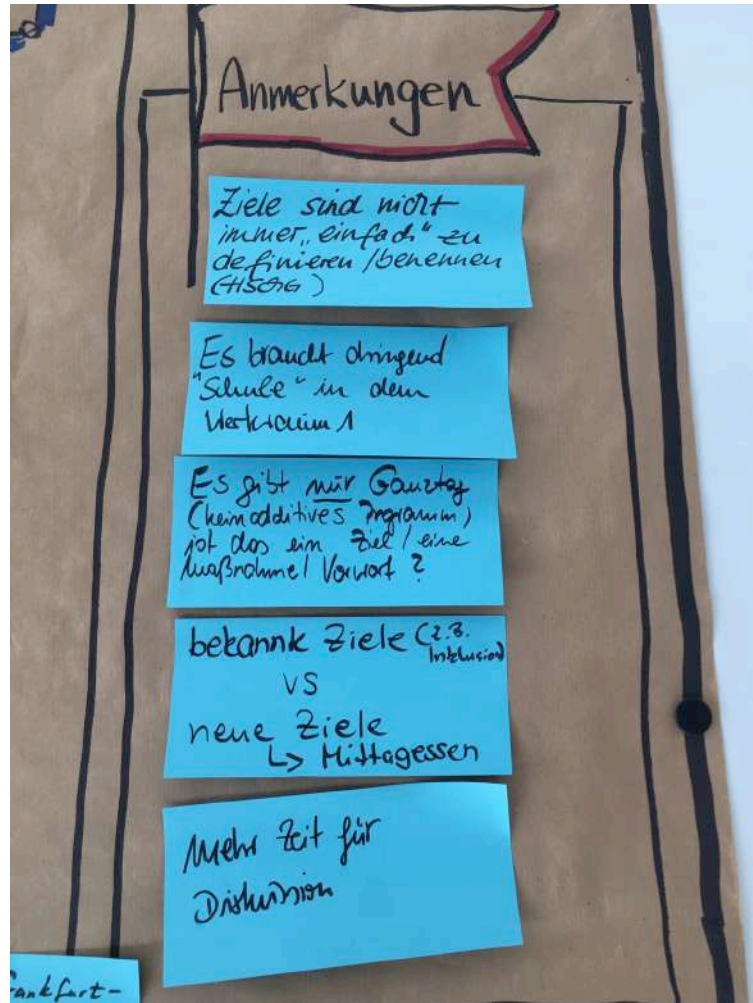 Anmerkungen
Ziele sind nicht
immer „einfach“ zu
definieren / benennen
(HSchG)
Es braucht dringend
"Schule" in dem
Werkraum 1
Es gibt nur Ganztag
(kein additives Programm)
ist das ein Ziel / eine
Maßnahme / Vorwort ?
bekannte Ziele (z.B.
Inklusion)
VS
neue Ziele
↳ Mittagessen
Mehr Zeit für
Diskussion
Frankfurt-